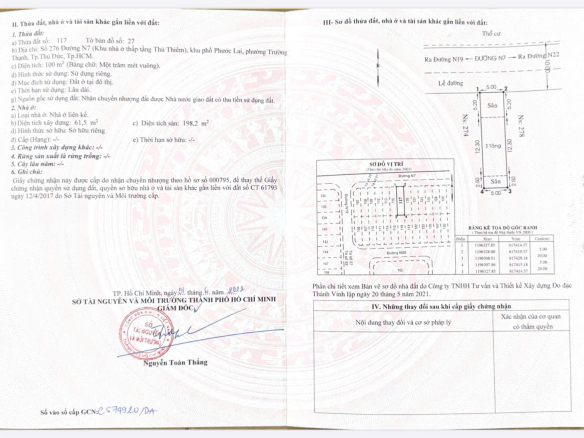 II. Thửa đất, nhà ở và tài sản khác gắn liền với đất:
1. Thửa đất:
a) Thửa đất số: 117 Tờ bản đồ số: 27
b) Địa chỉ: Số 276 Đường N7 (Khu nhà ở thấp tầng Thủ Thiêm), khu phố Phước Lai, phường Trường
Thạnh, Tp.Thủ Đức, Tp.HCM.
c) Diện tích: 100 m² (Bằng chữ: Một trăm mét vuông).
d) Hình thức sử dụng: Sử dụng riêng.
đ) Mục đích sử dụng: Đất ở tại đô thị.
e) Thời hạn sử dụng: Lâu dài.
g) Nguồn gốc sử dụng đất: Nhận chuyển nhượng đất được Nhà nước giao đất có thu tiền sử dụng đất.
2. Nhà ở:
a) Loại nhà ở: Nhà ở liên kế.
b) Diện tích xây dựng: 61,5 m² c) Diện tích sàn: 198,2 m²
d) Hình thức sở hữu: Sở hữu riêng
đ) Cấp (Hạng): -/- e) Thời hạn sở hữu: -/-
3. Công trình xây dựng khác: -/-
4. Rừng sản xuất là rừng trồng: -/-
5. Cây lâu năm: -/-
6. Ghi chú:
Giấy chứng nhận này được cấp do nhận chuyển nhượng theo hồ sơ số 000795, để thay thế Giấy
chứng nhận quyền sử dụng đất, quyền sở hữu nhà ở và tài sản khác gắn liền với đất số CT 61793
ngày 12/4/2017 do Sở Tài nguyên và Môi trường cấp.
TP. Hồ Chí Minh, ngày tháng năm
SỞ TÀI NGUYÊN VÀ MÔI TRƯỜNG THÀNH PHỐ HỒ CHÍ MINH
GIÁM ĐỐC
SỞ
TÀI NGUYÊN
VÀ MÔI TRƯỜNG
Nguyễn Toàn Thắng
Số vào sổ cấp GCN: CS74920/DA
III- Sơ đồ thửa đất, nhà ở và tài sản khác gắn liền với đất:
Thổ cư
Ra Đường N19 ← ĐƯỜNG N7 → Ra Đường N22
Lề đường
1 5.00 2
Sân
Nr. 274
Nr. 278
12.30
12.30
3 Tầng
Sân
4 5.00 3
SƠ ĐỒ VỊ TRÍ
Đường N7
117
Đường N20
BẢNG KÊ TỌA ĐỘ GÓC RANH
Điểm X(m) Y(m) Cạnh(m)
5.00
20.00
5.00
20.00
Phần chi tiết xem Bản vẽ sơ đồ nhà đất do Công ty TNHH Tư vấn và Thiết kế Xây dựng Đo đạc
Thành Vinh lập ngày 20 tháng 5 năm 2021.
IV. Những thay đổi sau khi cấp giấy chứng nhận
Nội dung thay đổi và cơ sở pháp lý
Xác nhận của cơ quan
có thẩm quyền